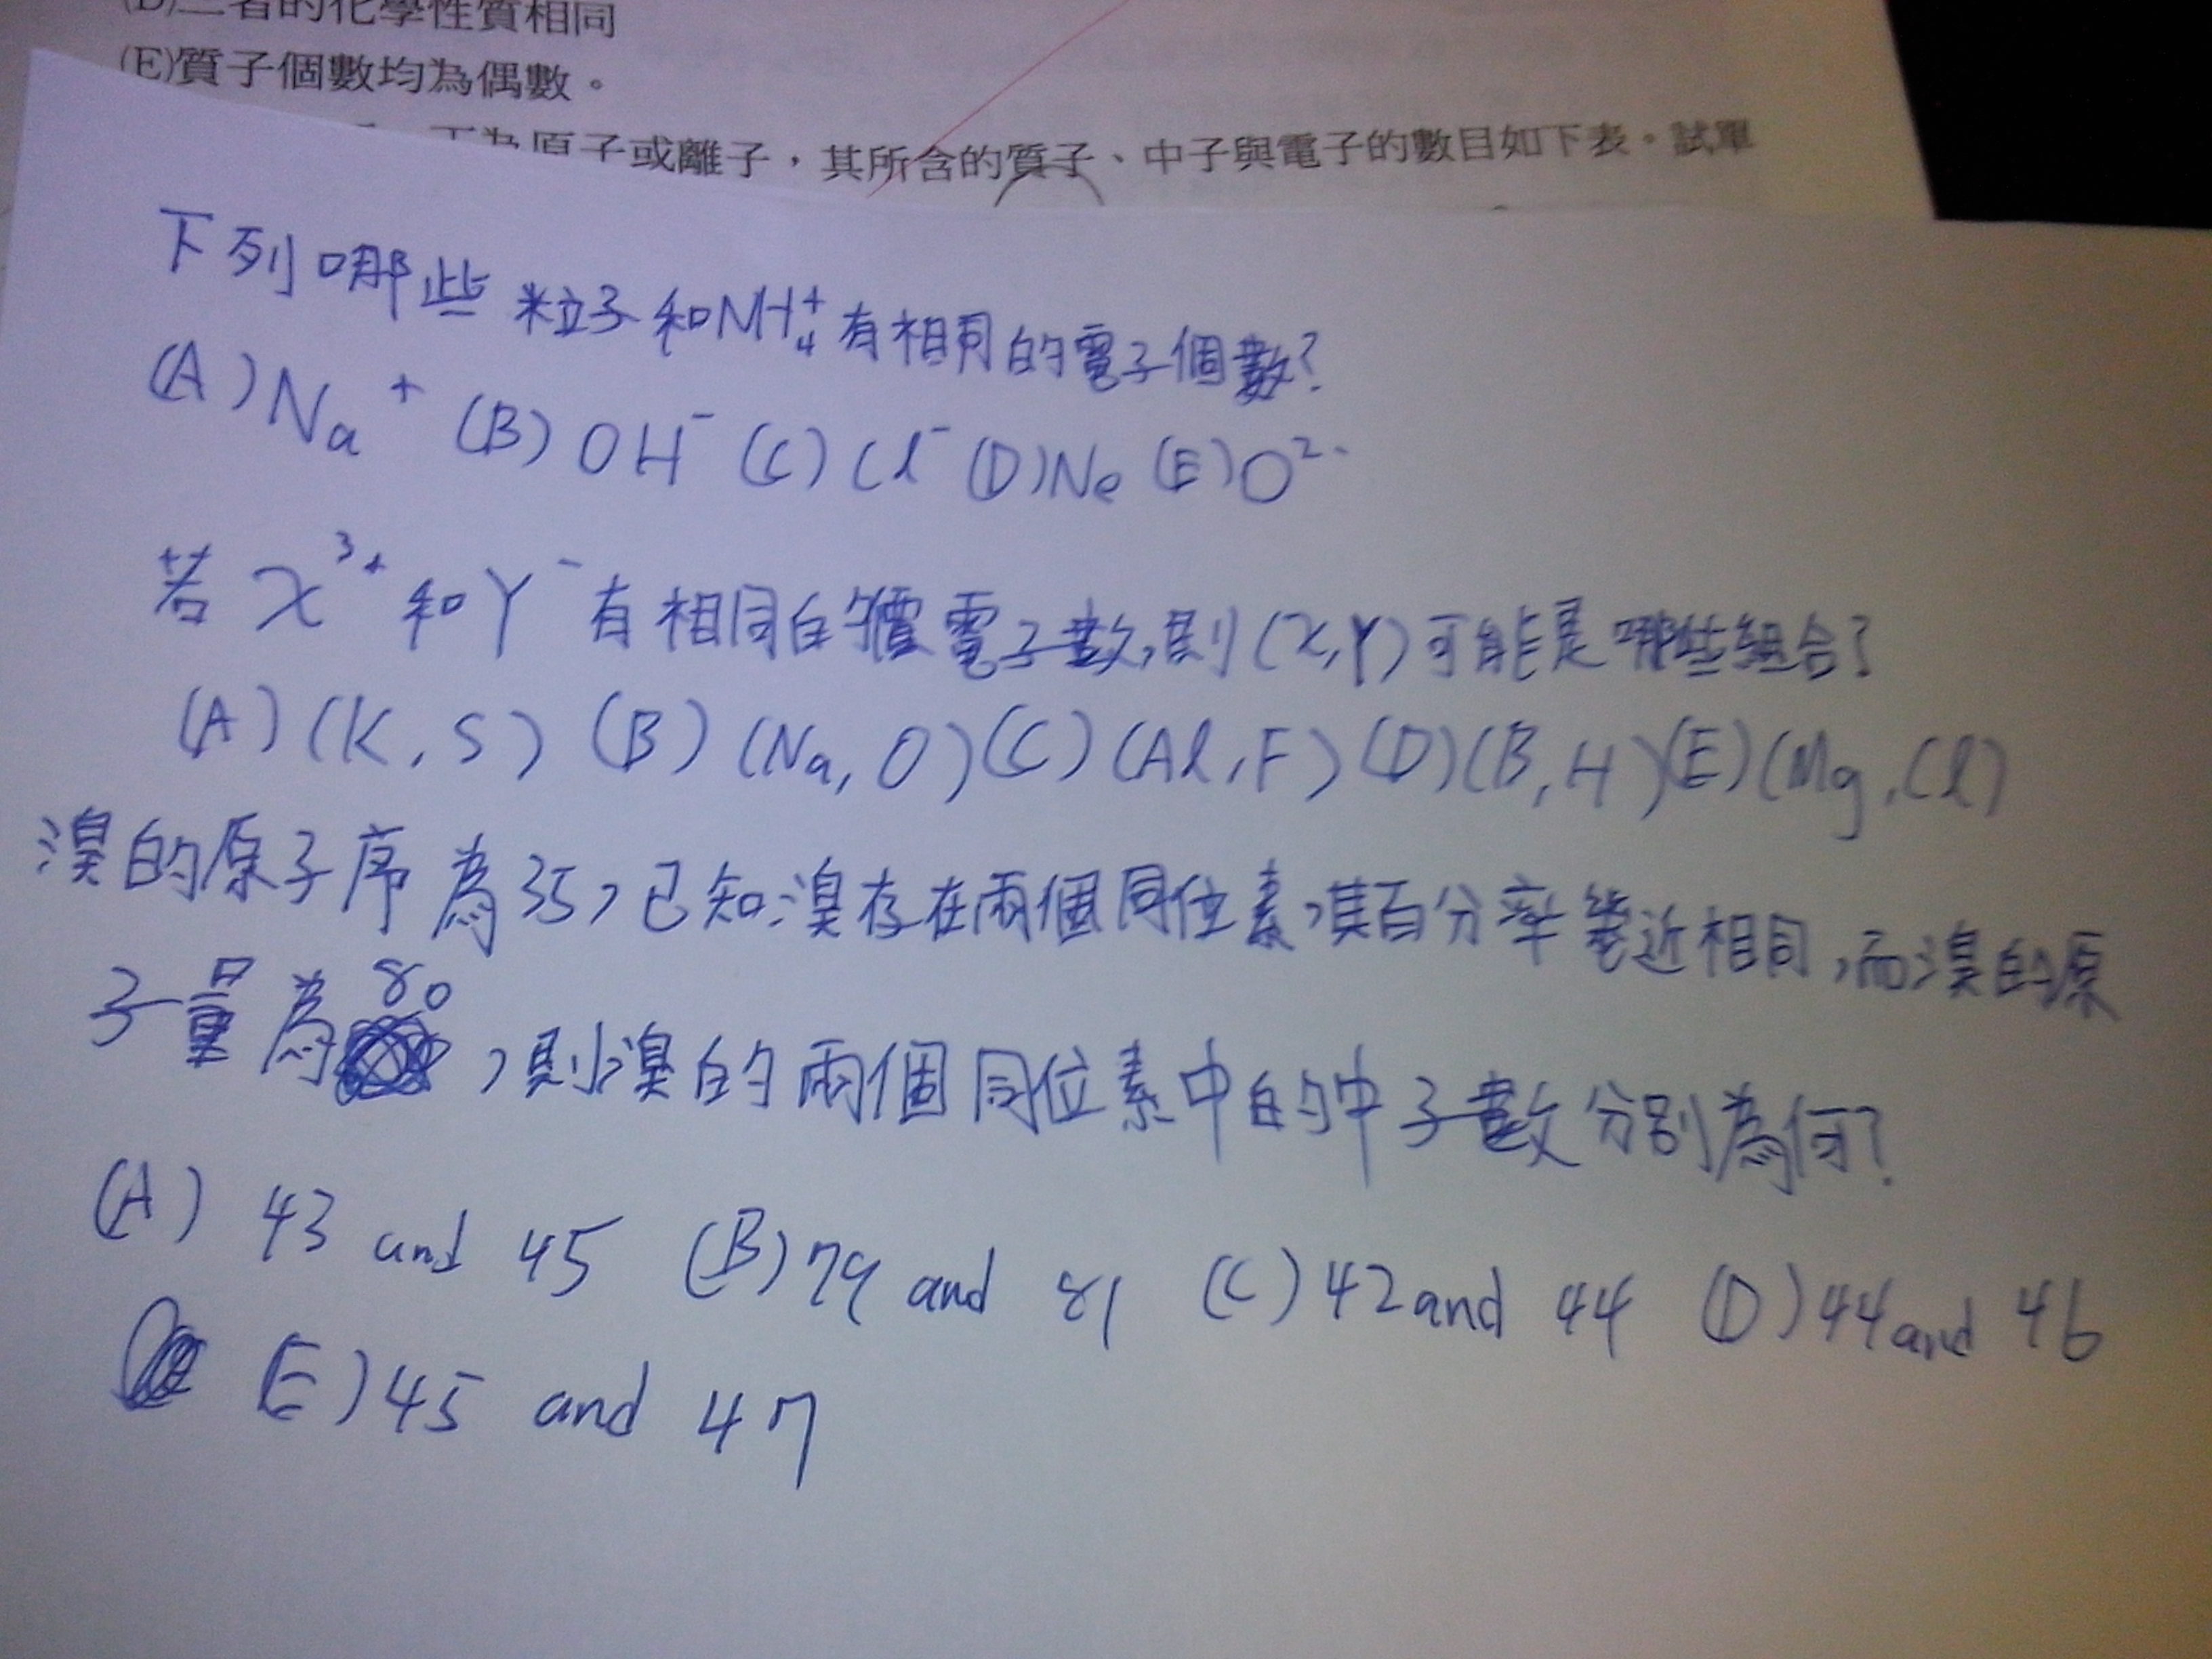 二者的化學性質相同
(E)質子個數均為偶數。
丁為原子或離子，其所含的質子、中子與電子的數目如下表。試單
下列哪些粒子和NH₄⁺有相同的電子個數?
(A) Na⁺ (B) OH⁻ (C) Cl⁻ (D) Ne (E) O²⁻
若 X³⁺ 和 Y⁻ 有相同的價電子數,則(X,Y)可能是哪些組合?
(A) (K, S) (B) (Na, O) (C) (Al, F) (D) (B, H) (E) (Mg, Cl)
溴的原子序為35,已知溴存在兩個同位素,其百分率幾近相同,而溴的原
子量為80,則溴的兩個同位素中的中子數分別為何?
(A) 43 and 45 (B) 79 and 81 (C) 42 and 44 (D) 44 and 46
(E) 45 and 47